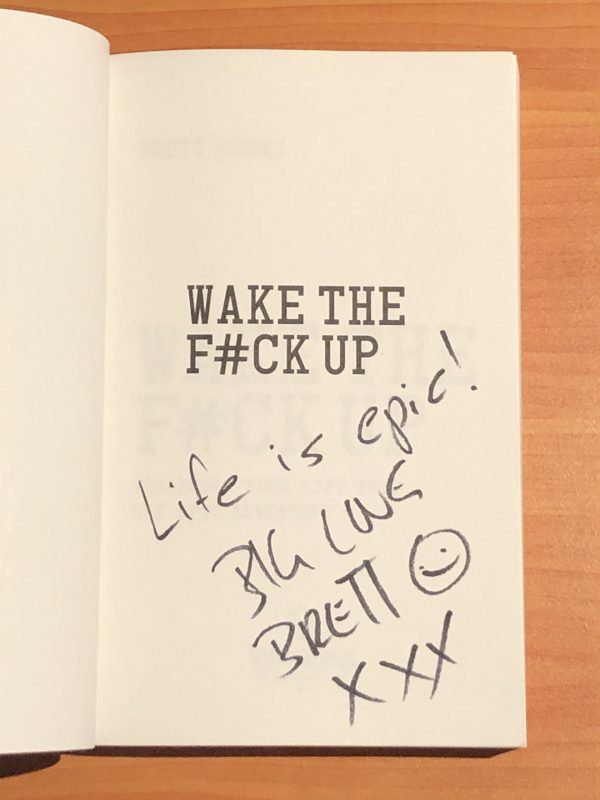 WAKE THE
F#CK UP
Life is epic!
BIG LOVE
BRETT
XXX